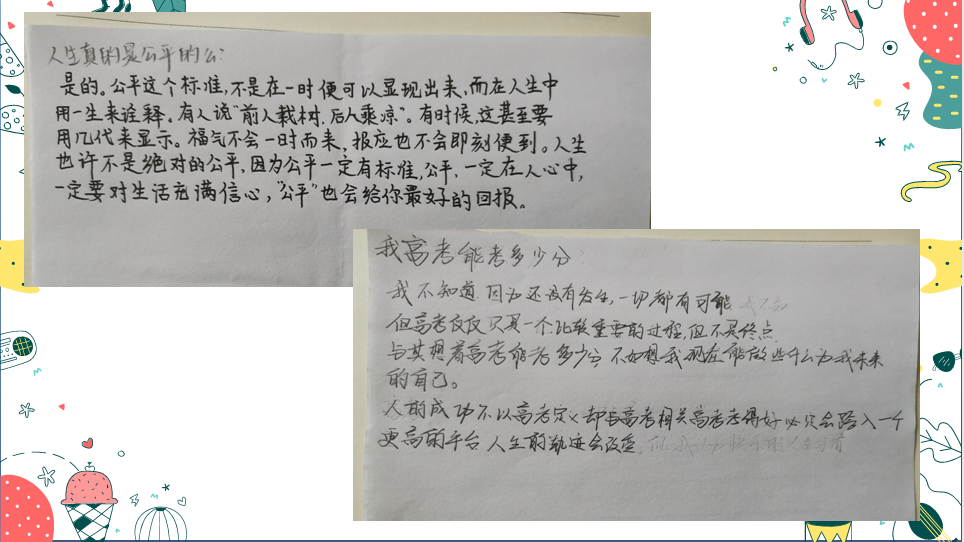 人生真的是公平的么?
是的。公平这个标准,不是在一时便可以显现出来,而在人生中
用一生来诠释。有人说"前人栽树,后人乘凉"。有时候,这甚至要
用几代来显示。福气不会一时而来,报应也不会即刻便到。人生
也许不是绝对的公平,因为公平一定有标准,公平,一定在人心中,
一定要对生活充满信心,"公平"也会给你最好的回报。
我高考能考多少分
我不知道 因为还没有发生,一切都有可能
但高考仅仅只是一个比较重要的过程,但不是终点
与其想着高考能考多少分 不如想我现在能做些什么为我未来
的自己。
人的成功不以高考定义 却与高考相关 高考考得好必定会踏入一个
更高的平台 人生的轨迹会改变